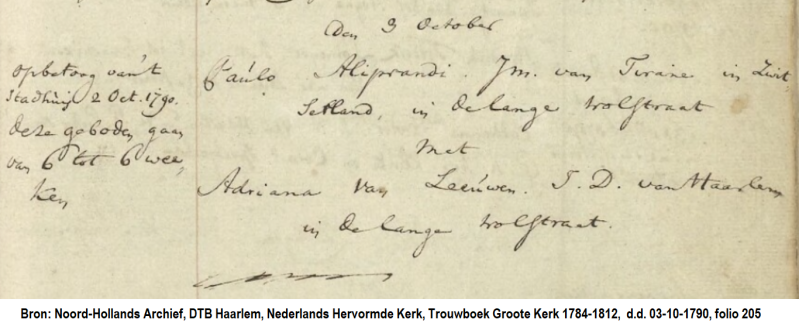 Den 3 October
opbetoog van't
Stadhuis 2 Oct. 1790.
deze geboden gaan
van 6 tot 6 wee,
ken
Paulo Aliprandi. Jm. van Tiraine in Zwit
Setland, in de lange Wolstraat
Met
Adriana van Leeúwen. J. D. van Haarlem
in de lange Wolstraat.
Bron: Noord-Hollands Archief, DTB Haarlem, Nederlands Hervormde Kerk, Trouwboek Groote Kerk 1784-1812, d.d. 03-10-1790, folio 205